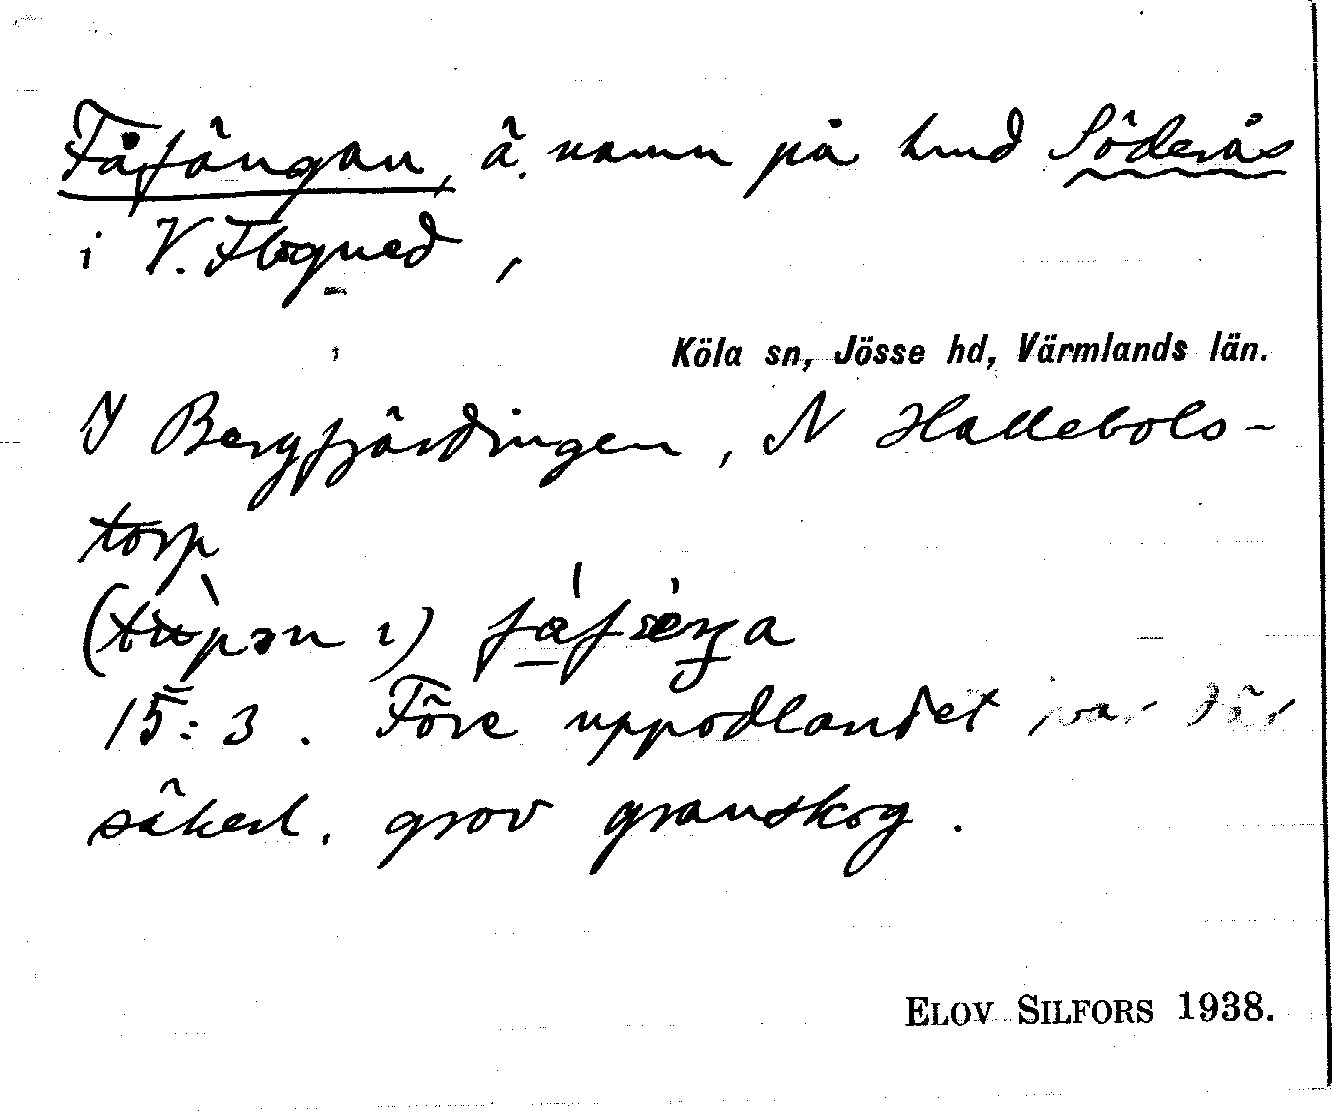 Fåfängan, ä. namn på hmd Söderås
i V. Flogned,
Köla sn, Jösse hd, Värmlands län.
I Bergfjärdingen, N Hallebols-
torp
15:3. Före uppodlandet var där
säkerl. grov granskog.
ELOV SILFORS 1938.